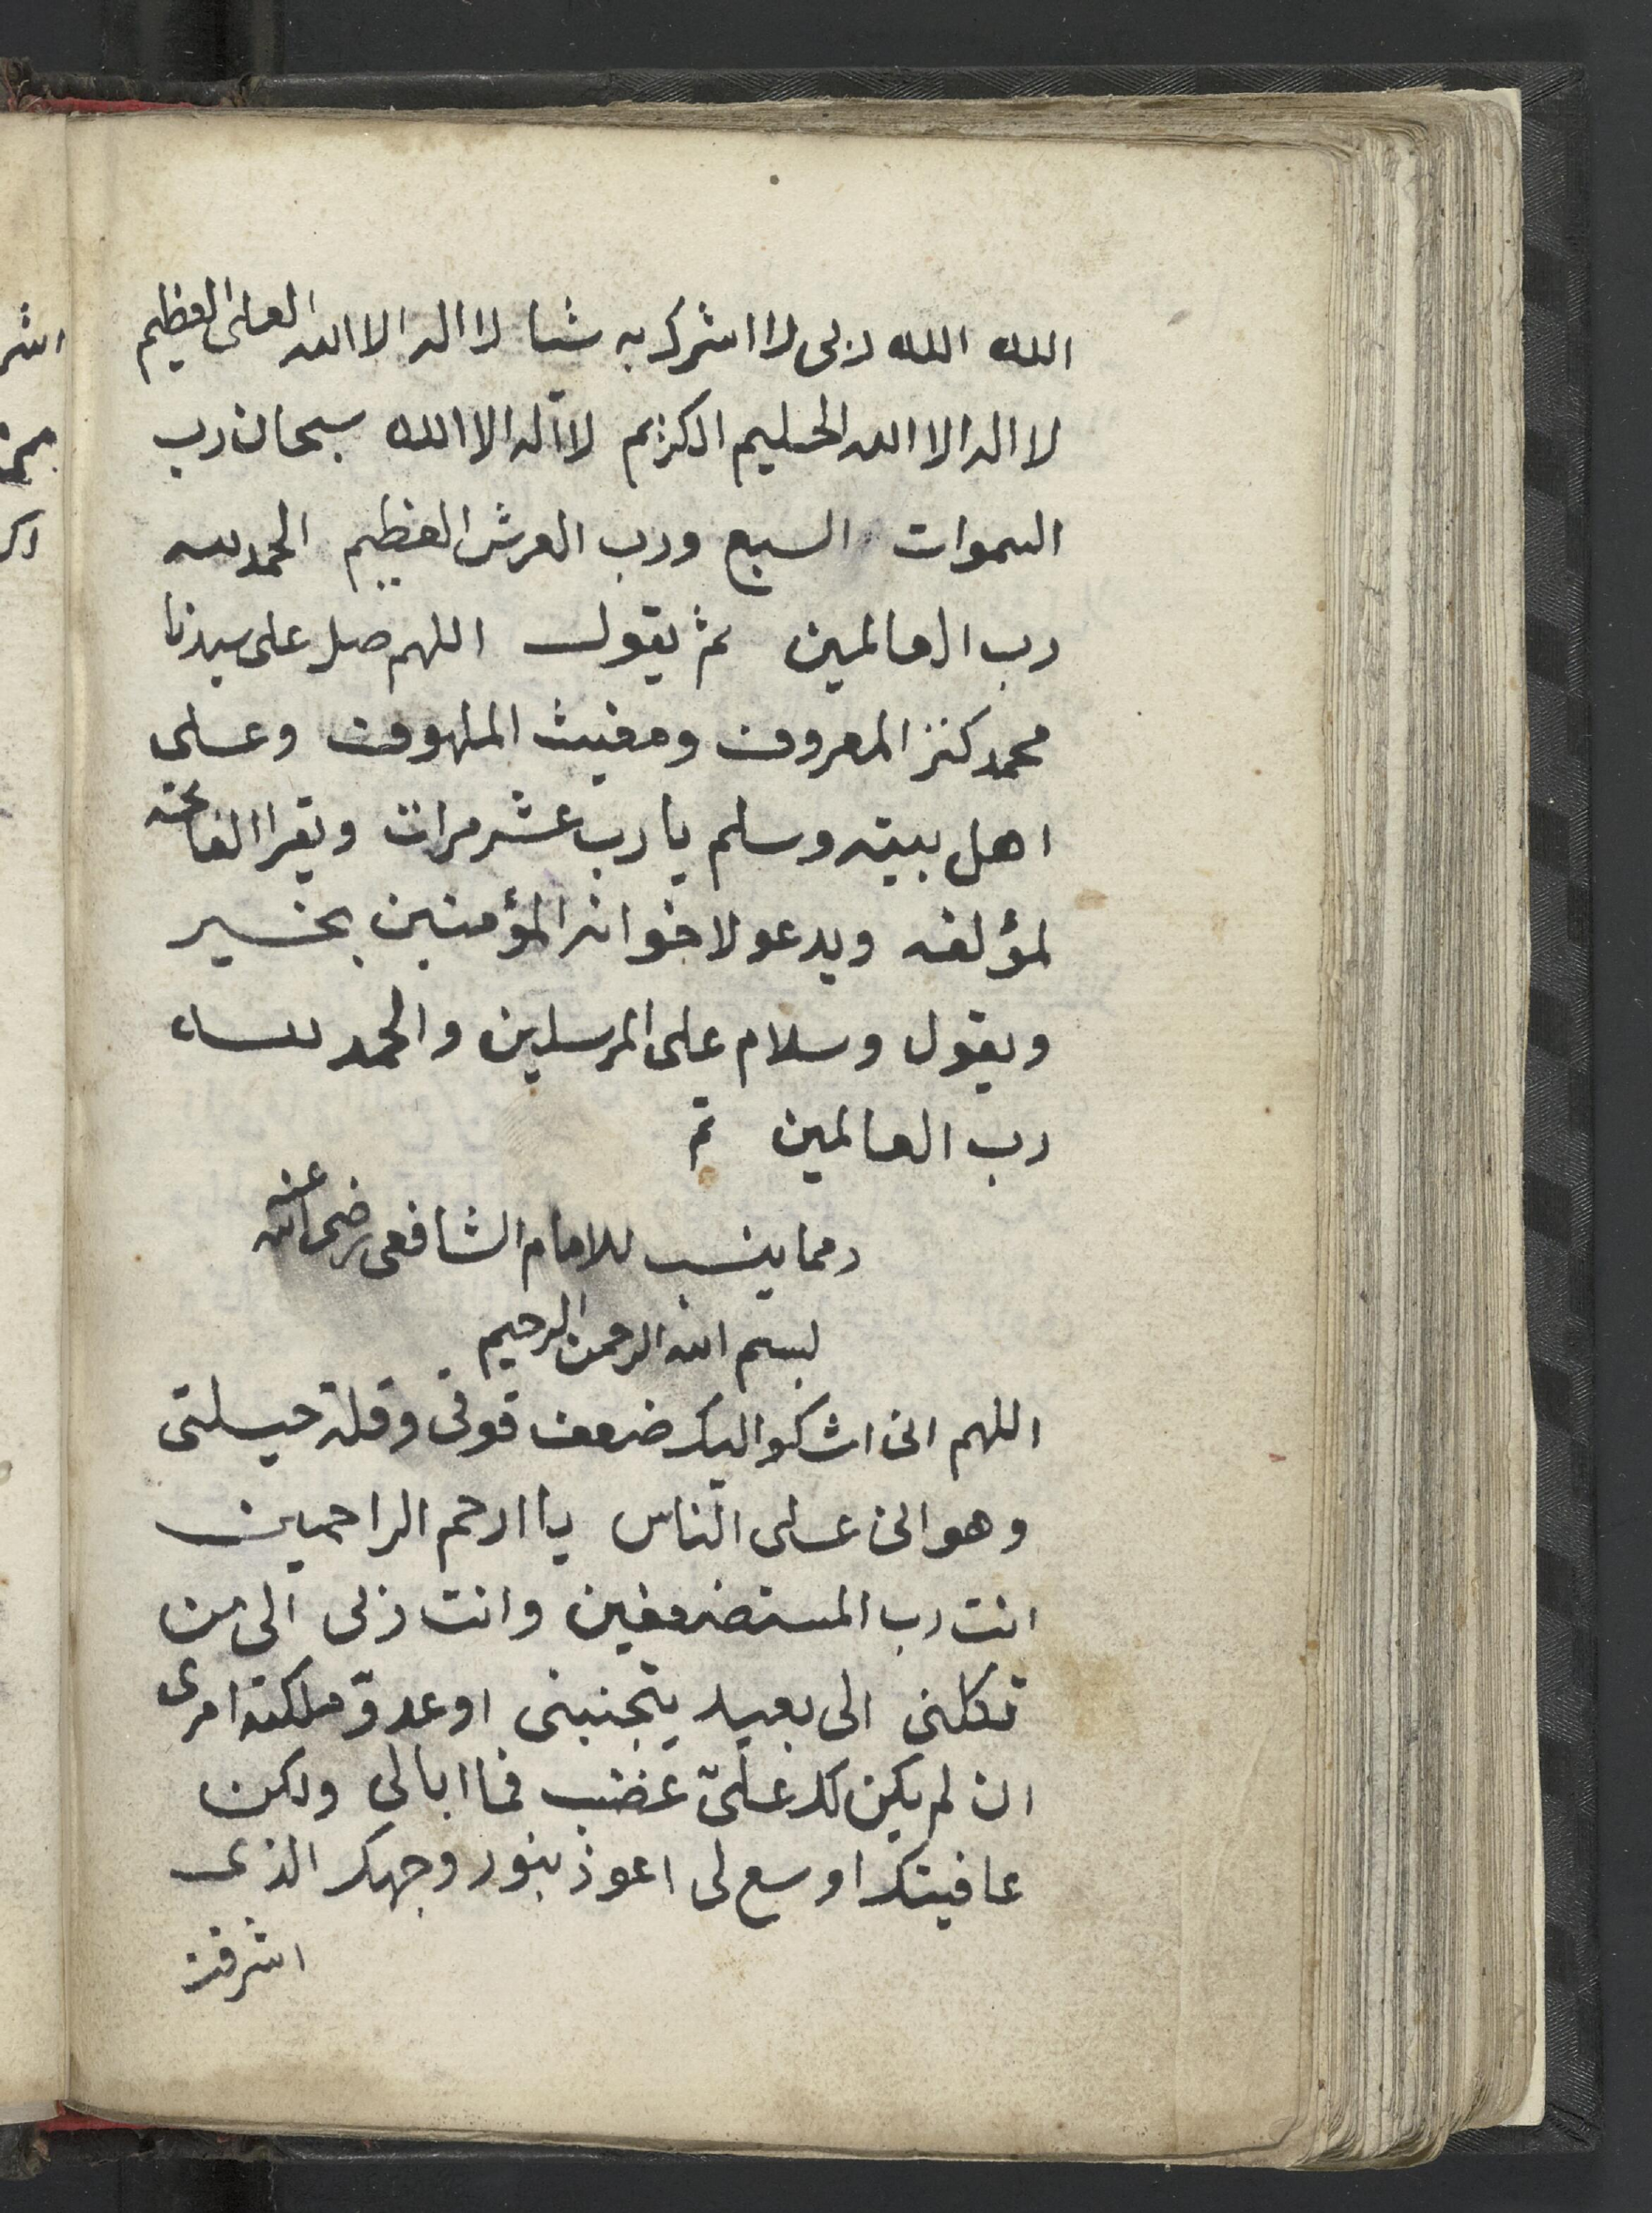 الله الله ربى لا اشرك به شيا لا اله الا الله العلى العظيم
لا اله الا الله الحليم الكريم لا اله الا الله سبحان رب
السموات السبع ورب العرش العظيم الحمد لله
رب العالمين ثم يقول اللهم صل على سيدنا
محمد كنز المعروف ومغيث الملهوف وعلى
اهل بيته وسلم يا رب عشر مرات ويقرا الفاتحه
لمؤلفه ويدعو لاخوانه المؤمنين بخير
ويقول وسلام على المرسلين والحمد لله
رب العالمين تم
ومما ينسب للامام الشافعى رضى الله عنه
بسم الله الرحمن الرحيم
اللهم انى اشكوا اليك ضعف قوتى وقلة حيلتى
وهوانى على الناس يا ارحم الراحمين
انت رب المستضعفين وانت ربى الى من
تكلنى الى بعيد يتجنبنى او عدوّ ملكته امرى
ان لم يكن لك علىّ غضب فما ابالى ولكن
عافيتك اوسع لى اعوذ بنور وجهك الذى
اشرقت